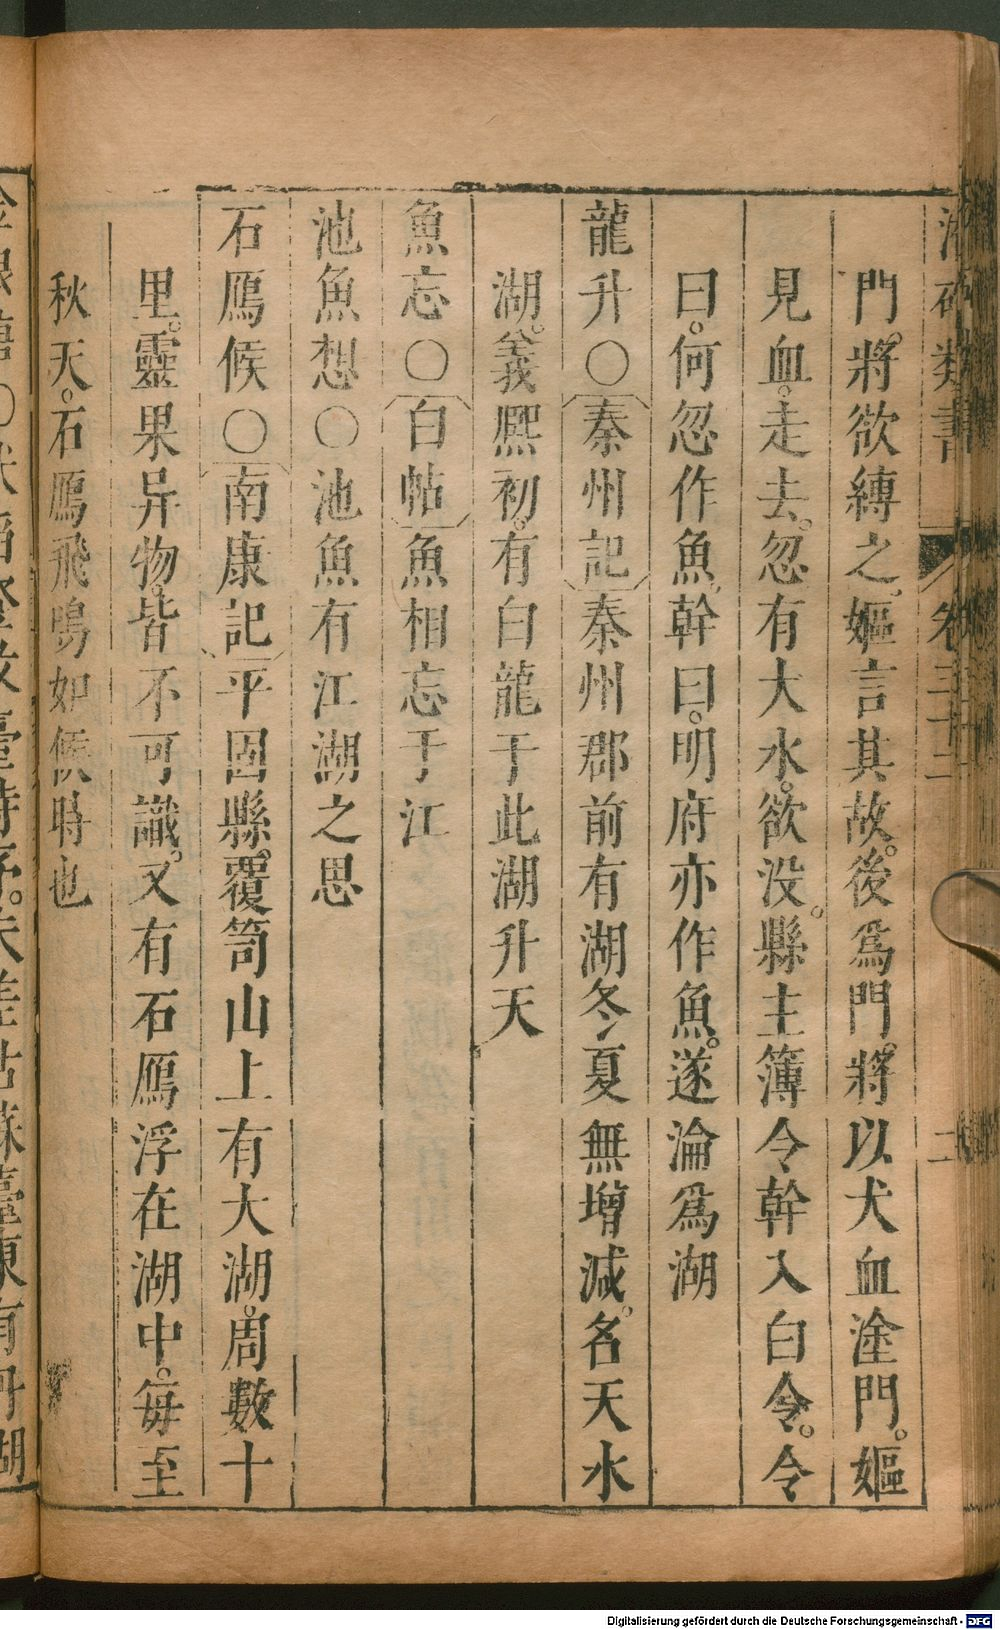 類書
卷三十二
二
門。將欲縛之。嫗言其故。後爲門。將以犬血塗門。嫗
見血。走去。忽有大水。欲没。縣主簿令幹入白令。令
曰。何忽作魚。幹曰。明府亦作魚。遂淪爲湖
龍升〇秦州記秦州郡前有湖冬夏無增減。名天水
湖。義熙初。有白龍于此湖升天
魚忘〇白帖魚相忘于江
池魚想〇池魚有江湖之思
石鴈候〇南康記平固縣。覆笥山上有大湖。周數十
里。靈果异物。皆不可識。又有石鴈浮在湖中。每至
秋天。石鴈飛鳴如候時也
臺東有丹湖
Digitalisierung gefördert durch die Deutsche Forschungsgemeinschaft - DFG